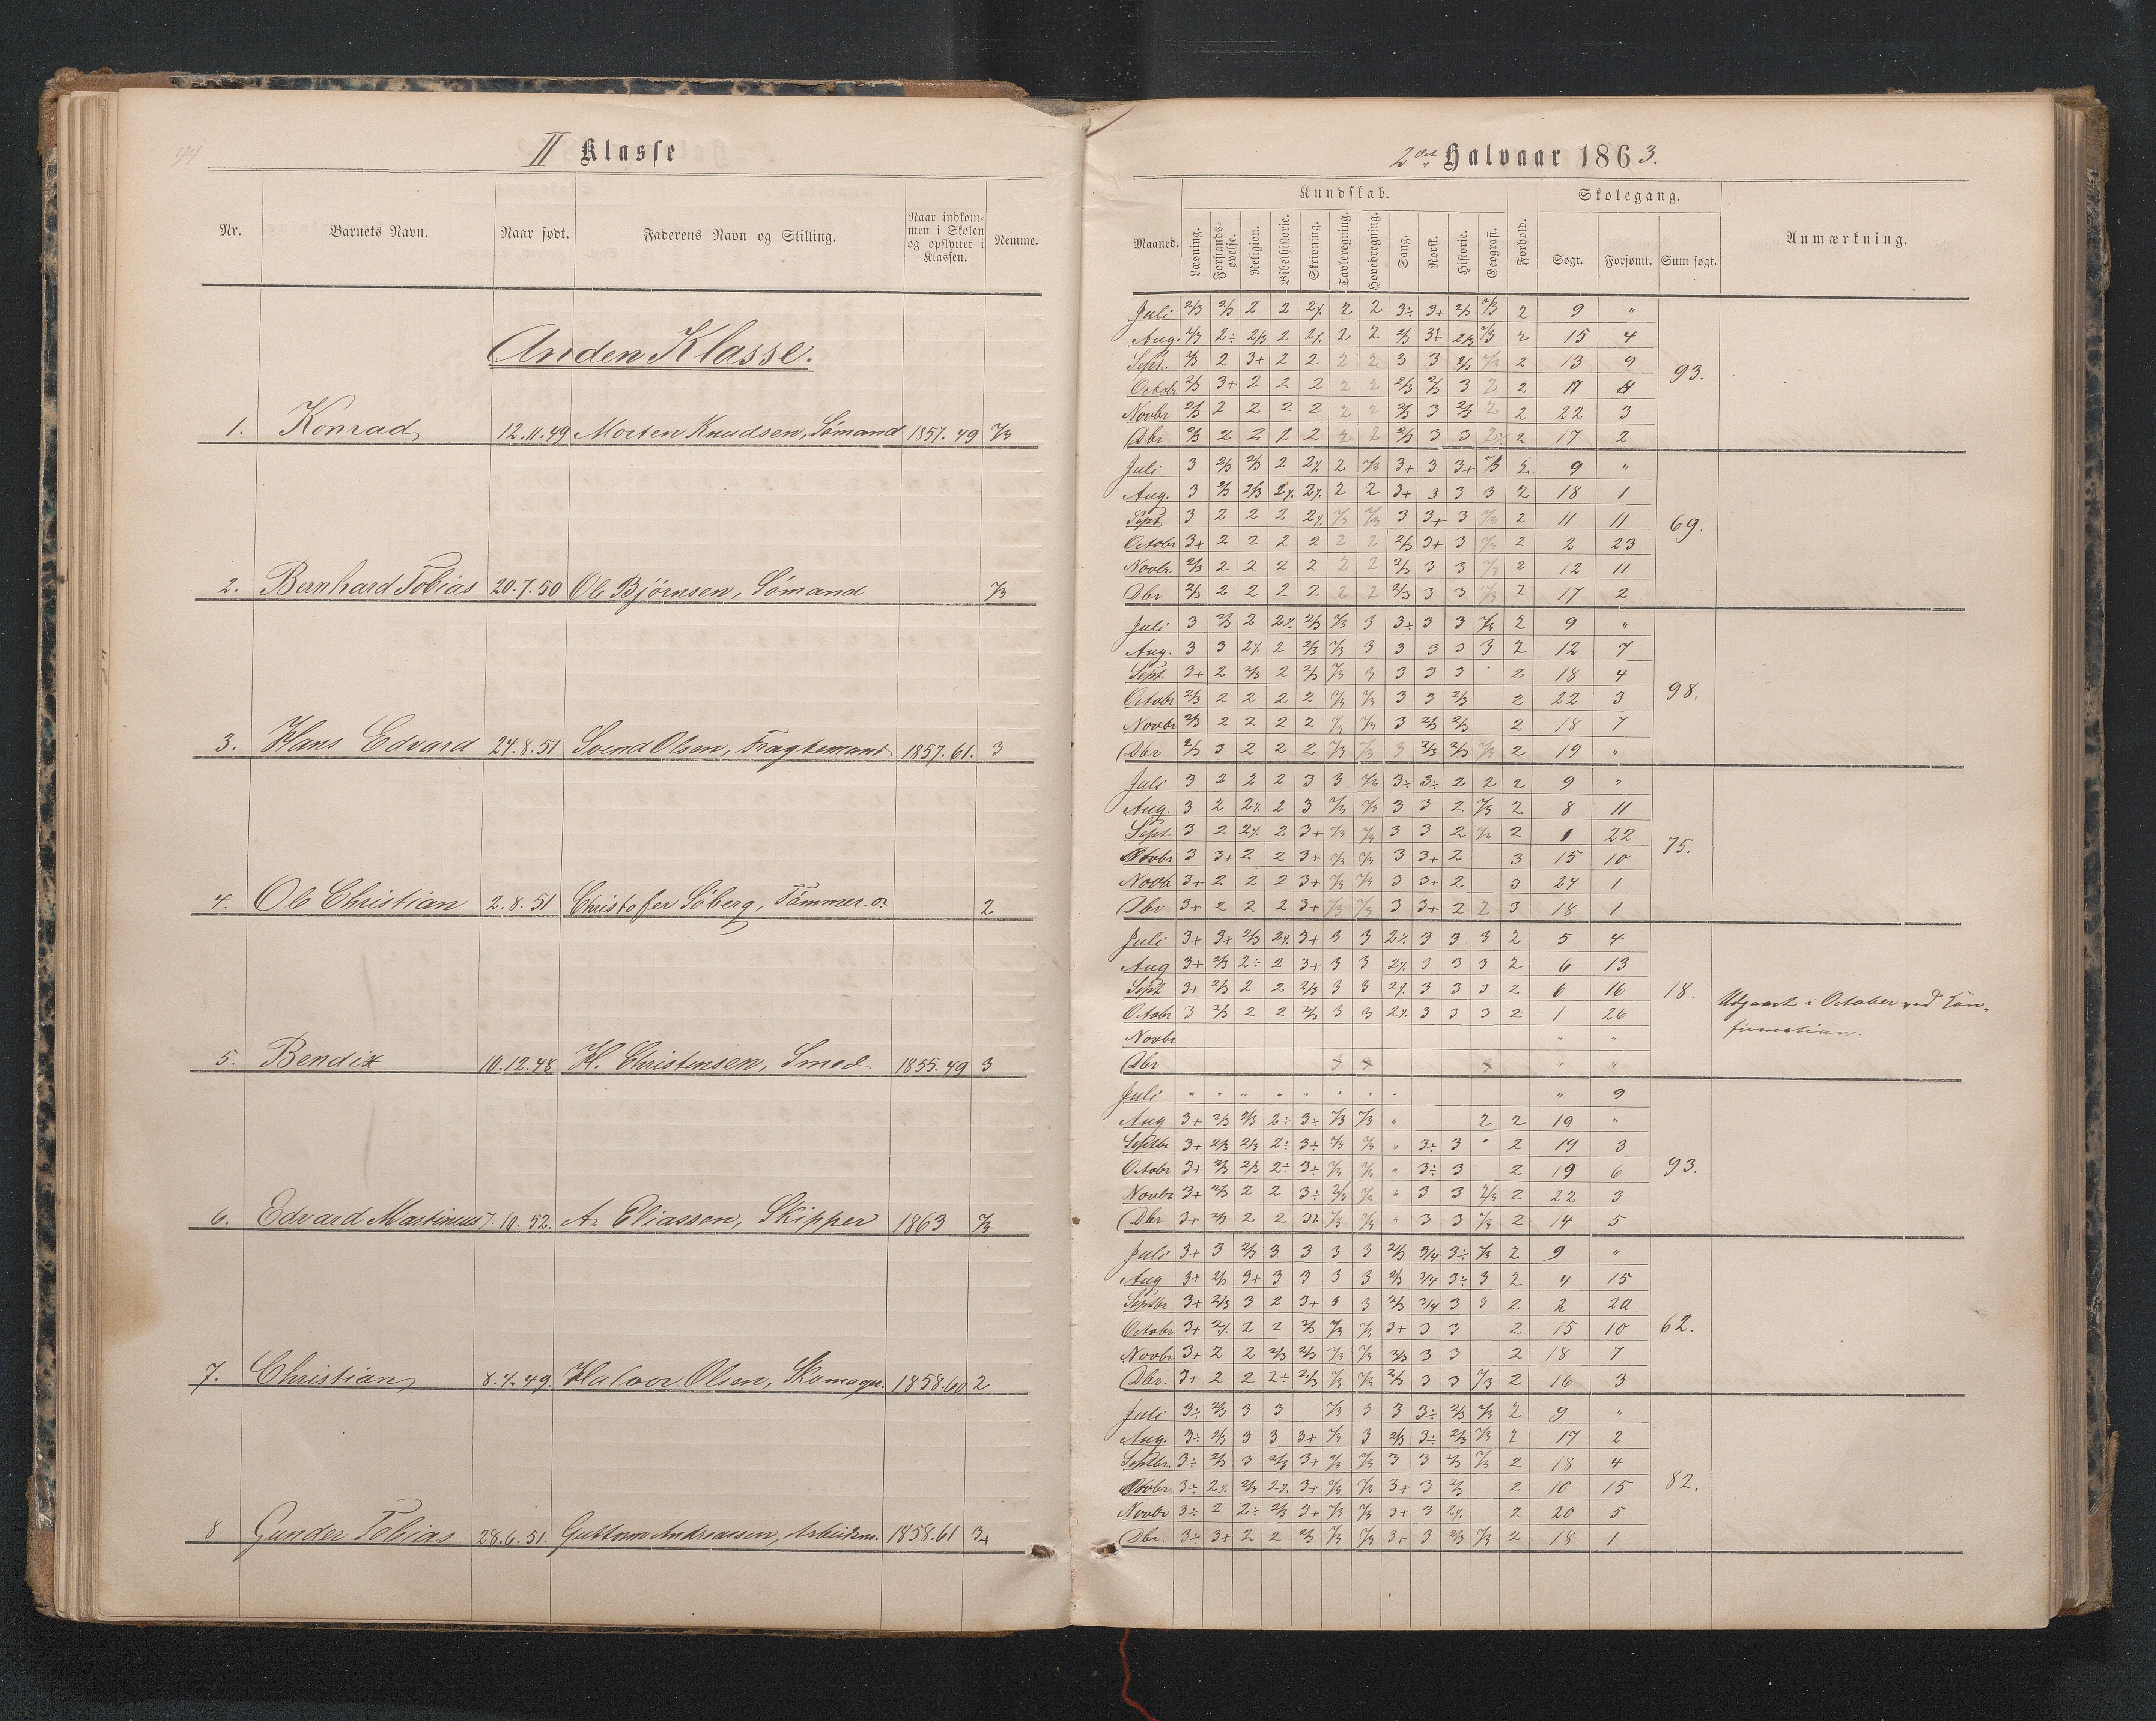 44
II Klasse
Nr. Barnets Navn. Naar født. Faderens Navn og Stilling. Naar indkom-
men i Skolen
og opflyttet i
Klassen. Nemme.
Anden Klasse.
1. Konrad 12.11.49 Morten Knudsen, Sømand 1857.49 2/3
2. Bernhard Tobias 20.7.50 Ole Bjørnsen, Sømand 2/3
3. Hans Edvard 24.8.51 Svend Olsen, Fragtemand 1857.61. 3
4. Ole Christian 2.8.51 Christofer Söberg, Tømmer 2
5. Bendix 10.12.48 H. Christensen, Smed 1855.49 3
6. Edvard Martinius 7.10.52. A. Eliassen, Skipper 1863 2/3
7. Christian 8.4.49. Halvor Olsen, Skomager. 1858.60 2
8. Gunder Tobias 28.6.51. Guttorm Andreassen, Arbeidsm. 1858.61 3+
2det Halvaar 1863.
Kundskab. Skolegang.
Maaned. Læsning. Forstands-
øvelse. Religion. Bibelhistorie. Skrivning. Tavleregning. Hovedregning. Sang. Norsk. Historie. Geografi. Forhold. Søgt. Forsømt. Sum søgt. Anmærkning.
Juli 2/3 2/3 2 2 2% 2 2 3÷ 3+ 2/3 2/3 2 9 "
Aug. 2/3 2÷ 2/3 2 2% 2 2 2/3 3+ 2/3 2/3 2 15 4
Sept. 2/3 2 3+ 2 2 2 2 3 3 2/3 2/3 2 13 9
Octobr 2/3 3+ 2 2 2 2 2 2/3 2/3 3 2 2 17
Novbr 2/3 2 2 2 2 2 2 2/3 3 2/3 2 2 22 3
Dbr 2/3 2 2 2 2 2 2 2/3 3 3 2% 2 17 2
93.
Juli 3 2/3 2/3 2 2% 2 2/3 3+ 3 3+ 2/3 2 9 "
Aug. 3 2/3 2/3 2% 2% 2 2 3+ 3 3 3 2 18 1
Sept. 3 2 2 2 2% 2/3 2/3 3 3+ 3 2/3 2 11 11
Octobr 3+ 2 2 2 2 2 2 2/3 3+ 3 2/3 2 2 23
Novbr 2/3 2 2 2 2 2 2 2/3 3 3 2/3 2 12 11
Dbr 2/3 2 2 2 2 2 2 2/3 3 3 2/3 2 17 2
69.
Juli 3 2/3 2 2% 2/3 2/3 3 3÷ 3 3 2/3 2 9 "
Aug. 3 3 2% 2 2/3 2/3 3 3 3 3 3 2 12 7
Sept 3+ 2 2/3 2 2/3 2/3 3 3 3 3 " 2 18 4
Octobr 2/3 2 2 2 2 2/3 2/3 3 3 2/3 2 22 3
Novbr 2/3 2 2 2 2 2/3 2/3 3 2/3 2/3 2 18 7
Dbr 2/3 3 2 2 2 2/3 2/3 3 2/3 2/3 2/3 2 19 "
98.
Juli 3 2 2 2 3 3 2/3 3÷ 3÷ 2 2 2 9 "
Aug. 3 2 2% 2 3 2/3 2/3 3 3 2 2/3 2 8 11
Sept 3 2 2% 2 3+ 2/3 2/3 3 3 2 2/3 2 1 22
Octobr 3 3+ 2 2 3+ 2/3 2/3 3 3+ 2 3 15 10
Novb 3+ 2 2 2 3+ 2/3 2/3 3 3+ 2 3 24 1
Dbr 3+ 2 2 2 3+ 2/3 2/3 3 3+ 2 2 3 18 1
75.
Juli 3+ 3+ 2/3 2% 3+ 3 3 2% 3 3 3 2 5 4
Aug 3+ 2/3 2÷ 2 3+ 3 3 2% 3 3 3 2 6 13
Sept 3+ 2/3 2 2 2/3 3 3 2% 3 3 3 2 6 16
Octobr 3 2/3 2 2 2/3 3 3 2% 3 3 3 2 1 26
Novbr " "
Dbr " "
18.
Udgaaet i October ved Kon-
firmation.
Juli " " " " " " " " " 9
Aug 3+ 2/3 2/3 2÷ 3÷ 2/3 2/3 " 2 2 19 "
Septbr 3+ 2/3 2/3 2÷ 3÷ 2/3 2/3 " 3÷ 3 " 2 19 3
Octobr 3+ 2/3 2/3 2÷ 3÷ 2/3 2/3 " 3÷ 3 2 19 6
Novbr 3+ 2/3 2 2 3÷ 2/3 2/3 " 3 3 2/3 2 22 3
Dbr 3+ 2/3 2 2 3% 2/3 2/3 " 3 3 2/3 2 14 5
93.
Juli 3+ 3 2/3 3 3 3 3 2/3 3/4 3÷ 2/3 2 9 "
Aug 3+ 2/3 3+ 3 3 3 3 2/3 3/4 3÷ 3 2 4 15
Septbr 3+ 2/3 3 2 3+ 3 3 2/3 3/4 3 3 2 2 20
Octobr 3+ 2% 2 2 2/3 2/3 2/3 3+ 3 3 2 15 10
Novbr 3+ 2 2 2/3 2/3 2/3 2/3 2/3 3 3 2 18 7
Dbr. 3+ 2 2 2÷ 2/3 2/3 2/3 2/3 3 3 2/3 2 16 3
62.
Juli 3÷ 2/3 3 3 2/3 3 3 3÷ 2/3 2/3 2 9 "
Aug. 3÷ 2/3 3 3 3+ 2/3 3 2/3 3÷ 2/3 2/3 2 17 2
Septbr. 3÷ 2/3 3 2/3 3+ 2/3 2/3 3 3 2/3 2/3 2 18 4
Octobr. 3÷ 2% 2/3 2% 3+ 2/3 2/3 3+ 3 2/3 2 10 15
Novbr 3÷ 2 2÷ 2/3 3+ 2/3 2/3 3+ 3 2% 2 20 5
Dbr. 3÷ 3+ 2 2 2/3 2/3 2/3 3+ 3 2/3 2/3 2 18 1
82.